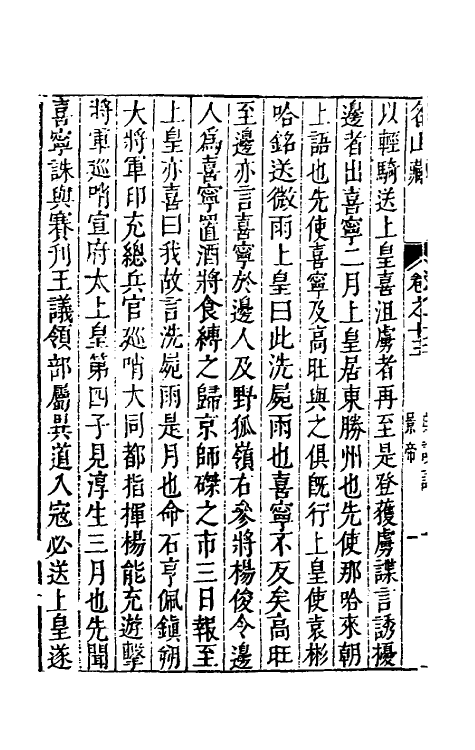 名山藏 卷之十三 典謨記 景帝 一
以輕騎送上皇喜沮虜者再至是登獲虜諜言誘擾
邊者出喜寧二月上皇居東勝州也先使那哈來朝
上語也先使喜寧及高旺與之俱旣行上皇使袁彬
哈銘送微雨上皇曰此洗屍雨也喜寧不反矣高旺
至邊亦言喜寧於邊人及野狐嶺右參將楊俊令邊
人爲喜寧置酒將食縛之歸京師磔之市三日報至
上皇亦喜曰我故言洗屍雨是月也命石亨佩鎭朔
大將軍印充總兵官廵哨大同都指揮楊能充遊擊
將軍廵哨宣府太上皇第四子見淳生三月也先聞
喜寧誅與賽刋王議領部屬異道入寇必送上皇遂